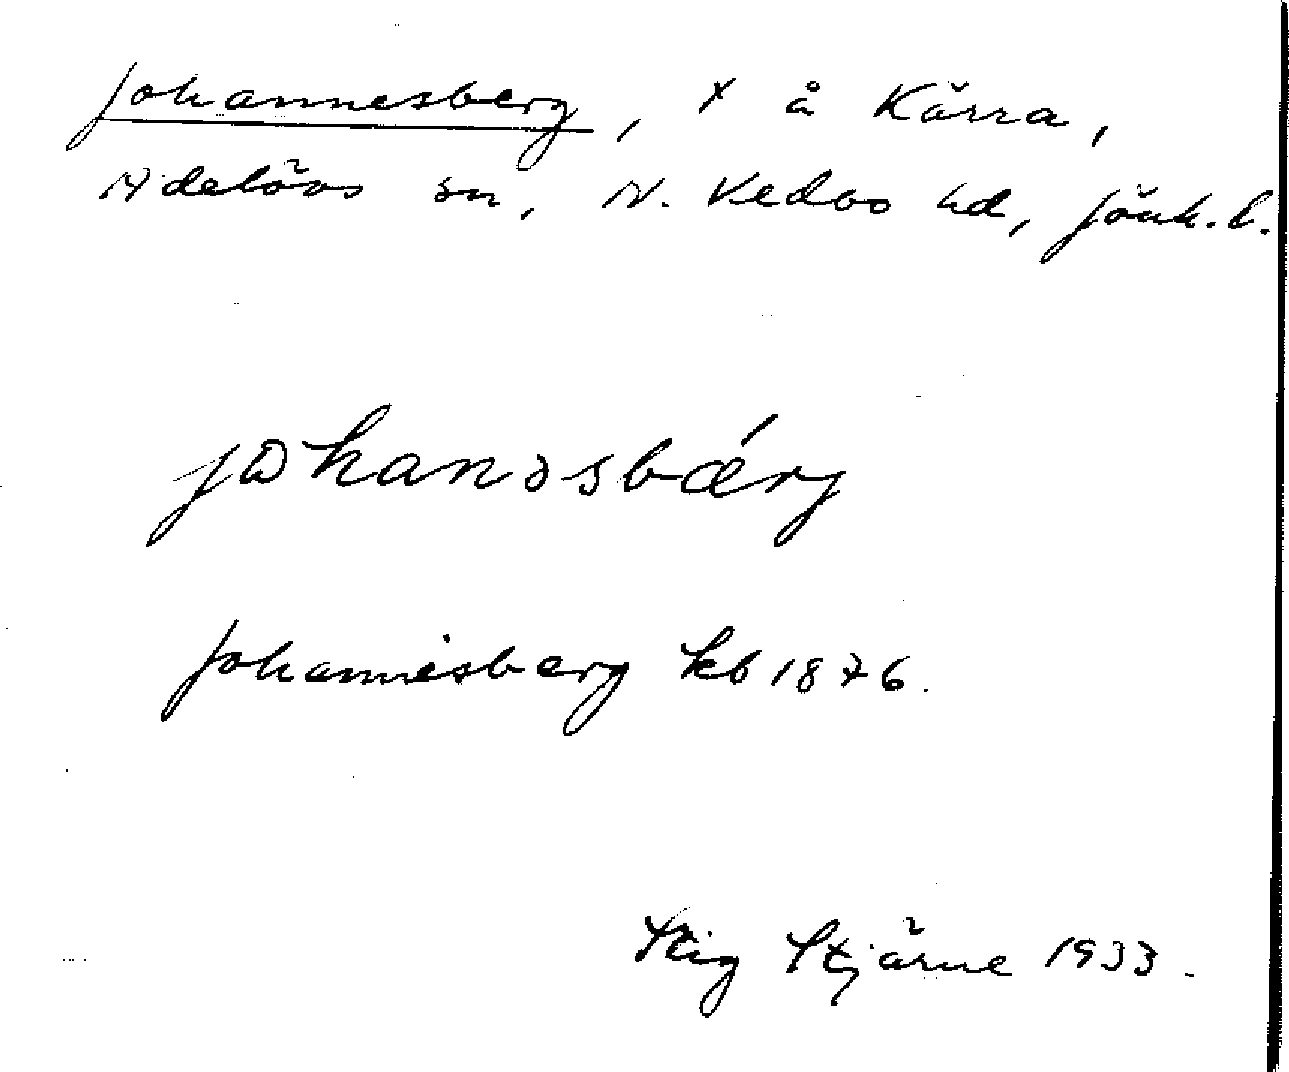 Johannesberg, x å Kärra,
Adelövs sn, N. Vedbo hd, Jönk. l.
johanəsbærj
Johannisberg kb 1876.
Stig Stjärne 1933.